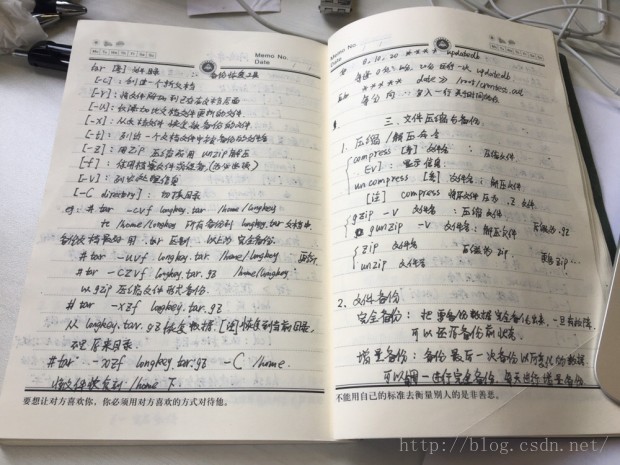 Memo No.
Date
tar [参] 文件/目录 备份恢复工具
[-c]: 创建一个新文档
[-r]: 将文件附加到已存在文档后面
[-u]: 仅添加比文档文件更新的文件
[-x]: 从文档文件恢复被备份的文件
[-t]: 列出一个文档文件中被备份的文件名
[-z]: 用zip压缩或用unzip解压
[-f]: 使用档案文件或设备(必选)
[-v]: 列出处理信息
[-C directory]: 切换目录
eg: #tar -cvf longkey.tar /home/longkey
把 /home/longkey 所有备份到 longkey.tar 文档中
备份文档最好用.tar后缀. 以上为完全备份.
#tar -uvf longkey.tar /home/longkey
#tar -czvf longkey.tar.gz /home/longkey
以gzip压缩文件形式备份.
#tar -xzf longkey.tar.gz
从 longkey.tar.gz 恢复数据. [注]恢复到当前目录,
不是原来目录.
#tar -xzf longkey.tar.gz -C /home
将文件恢复到 /home 下
要想让对方喜欢你，你必须用对方喜欢的方式对待他。
Memo No.
Date
0, 10, 20 * * * * updatedb
updatedb
* * * * * date >> /root/
每分钟 写入一行
三. 文件压缩与备份
1. 压缩/解压命令
compress [参] 文件名 : 压缩文件
[-v]: 显示信息
uncompress [参] 文件名 : 解压文件
[注] compress 将文件压为 .Z 文件
gzip -v 文件名 : 压缩文件 压缩为.gz
gunzip -v 文件名 : 解压文件
zip 文件名 压缩为zip
unzip 文件名
2. 文件备份
完全备份: 把要备份数据完全备份出来, 一旦有故障,
可以还原备份前状态.
增量备份: 备份最后一次备份以后变化的数据
可以周一进行完全备份, 每天进行增量备份
不能用自己的标准去衡量别人的是非善恶。
http://blog.csdn.net/